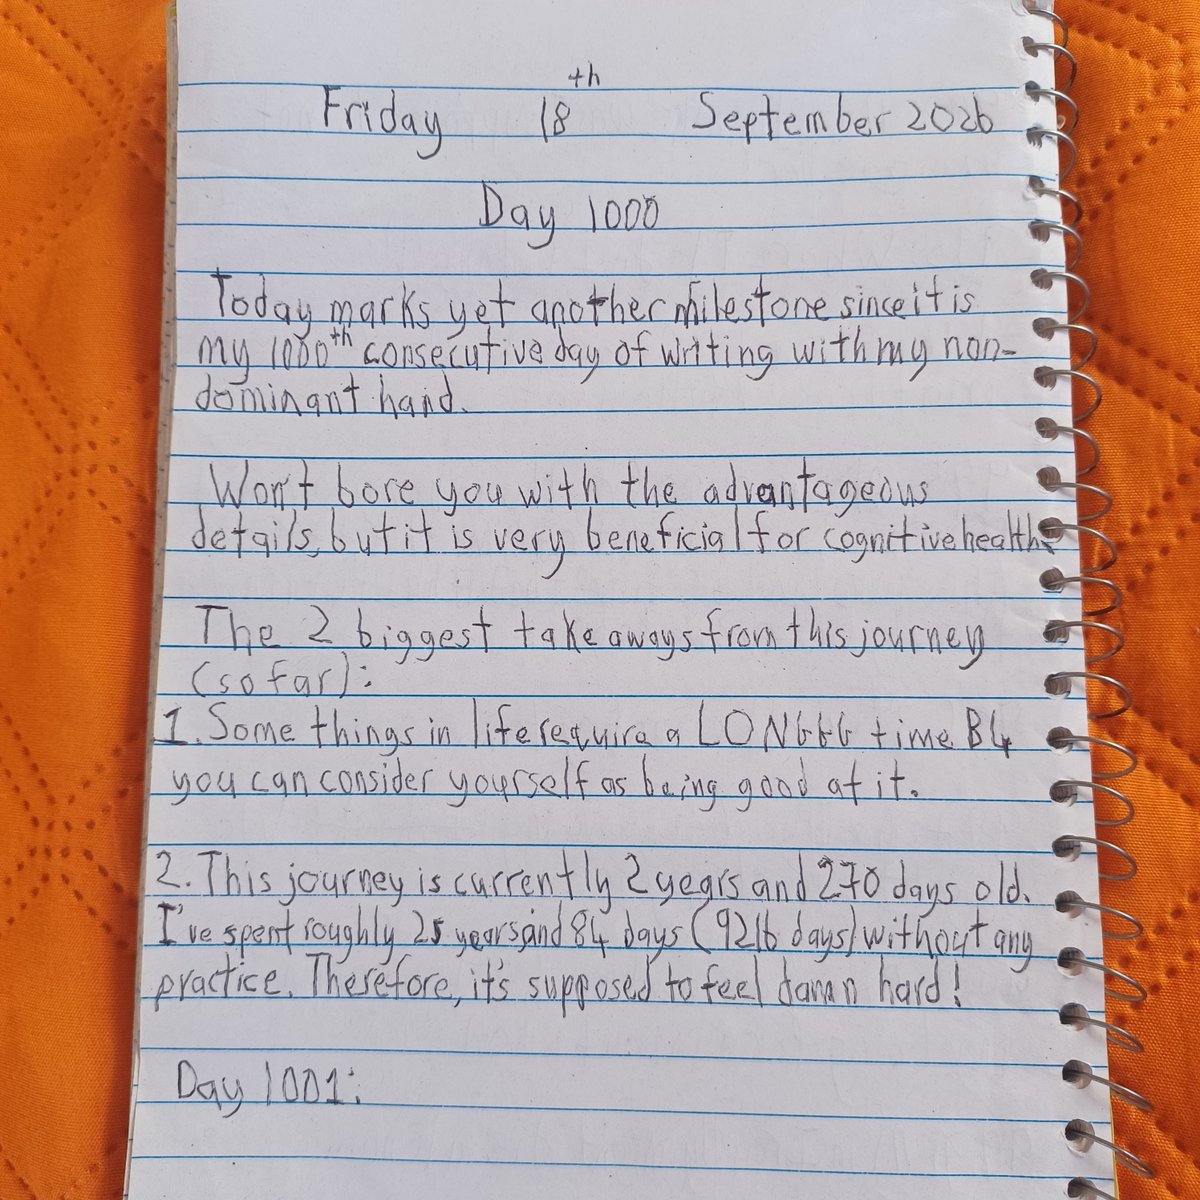 Friday 18th September 2026
Day 1000
Today marks yet another milestone since it is
my 1000th consecutive day of writing with my non-
dominant hand.
Won't bore you with the advantageous
details, but it is very beneficial for cognitive health.
The 2 biggest take aways from this journey
(so far):
1. Some things in life require a LONGGG time B4
you can consider yourself as being good at it.
2. This journey is currently 2 years and 270 days old.
I've spent roughly 25 years and 84 days (9216 days) without any
practice. Therefore, it's supposed to feel damn hard!
Day 1001: